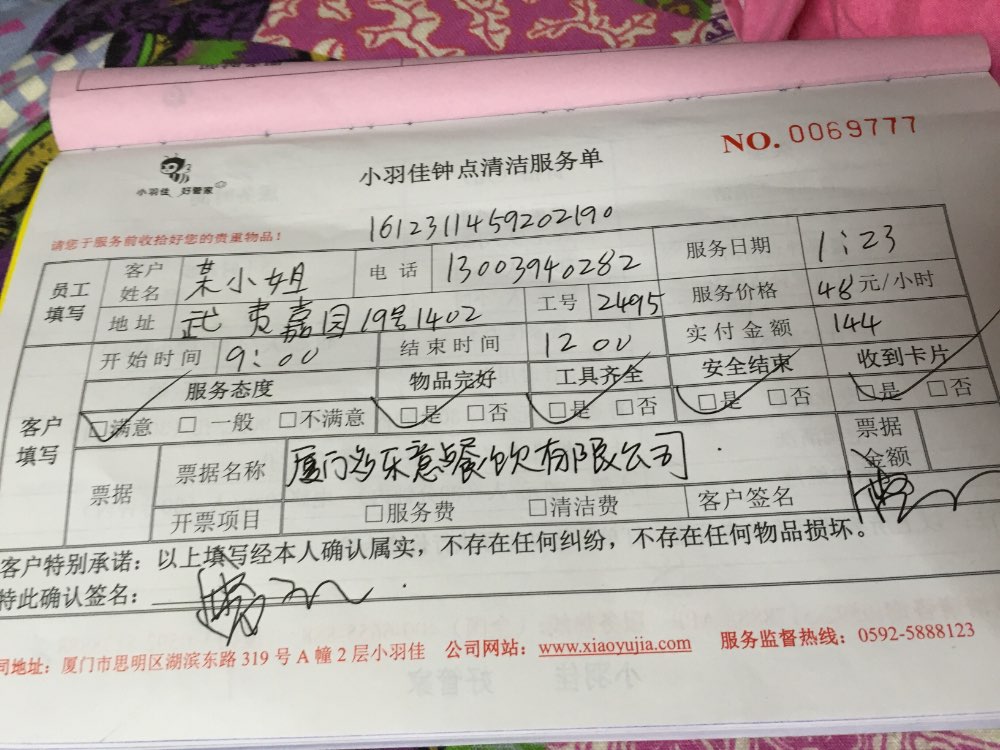 小羽佳 好管家
小羽佳钟点清洁服务单
NO. 0069777
1612311459202190
请您于服务前收拾好您的贵重物品！
员工填写 客户姓名 某小姐 电话 13003940282 服务日期 1:23
地址 武夷嘉园19号1402 工号 2495 服务价格 48元/小时
开始时间 9:00 结束时间 12 00 实付金额 144
客户填写 服务态度 物品完好 工具齐全 安全结束 收到卡片
☑满意 □ 一般 □不满意 ☑是 □否 ☑是 □否 ☑是 □否 ☑是 □否
票据 票据名称 厦门多乐意餐饮有限公司 票据金额
开票项目 □服务费 □清洁费 客户签名
客户特别承诺：以上填写经本人确认属实，不存在任何纠纷，不存在任何物品损坏。
特此确认签名：
司地址：厦门市思明区湖滨东路 319 号 A 幢 2 层小羽佳 公司网站：www.xiaoyujia.com 服务监督热线：0592-5888123